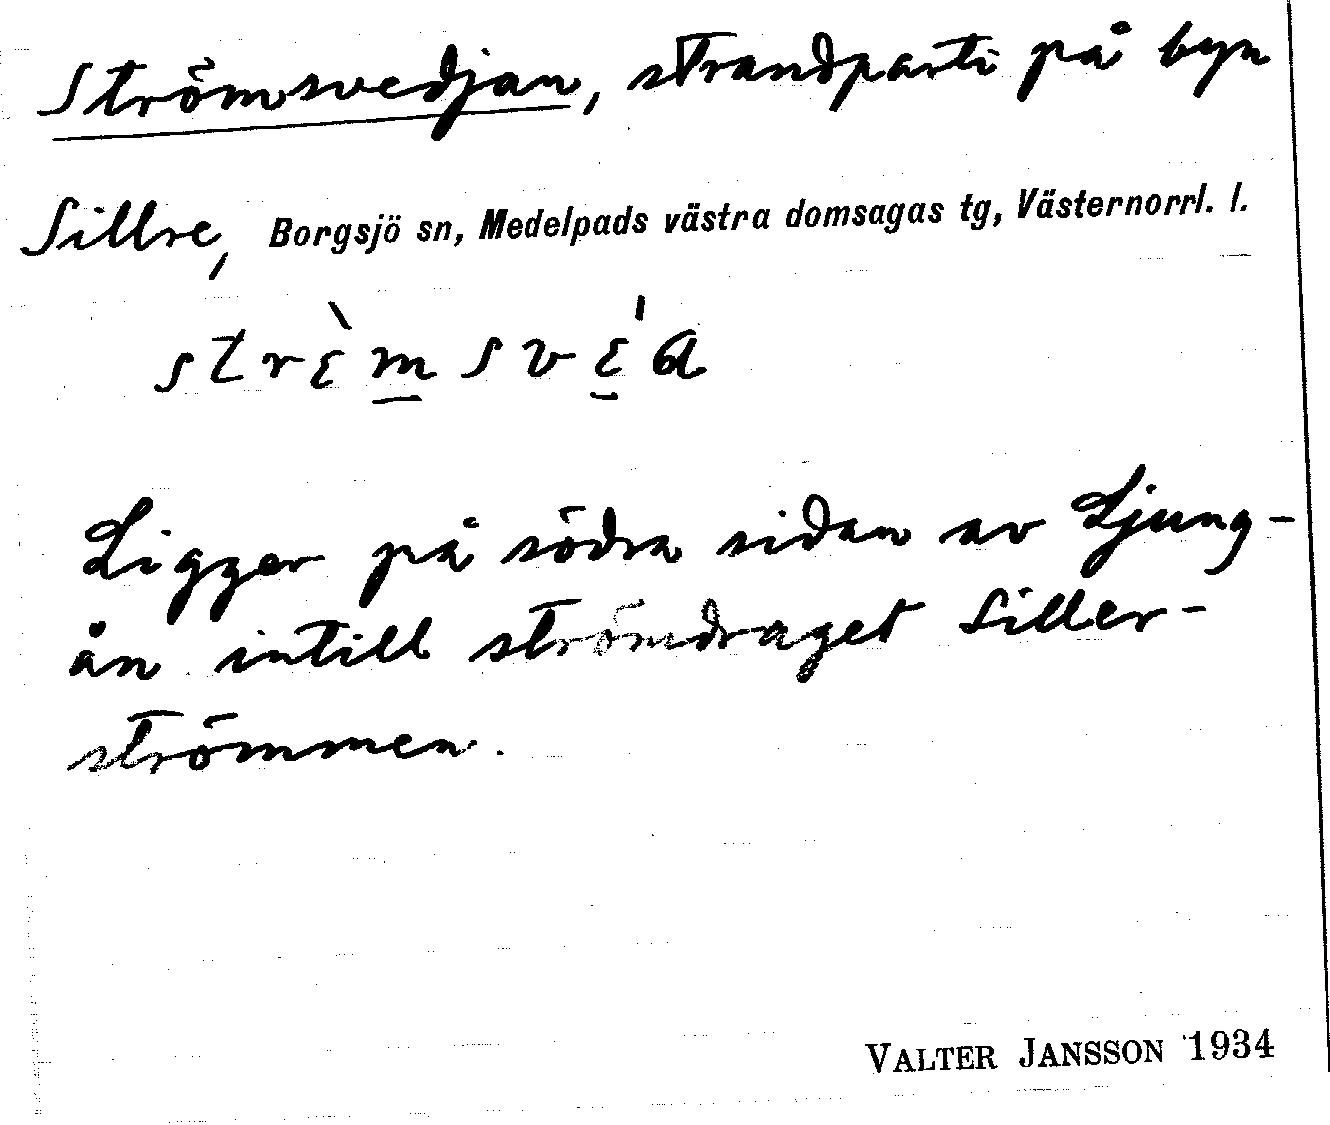 Strömsvedjan, strandparti på byn
Sillre, Borgsjö sn, Medelpads västra domsagas tg, Västernorrl. l.
strɛ̀m̲svɛ̲́a
Ligger på södra sidan av Ljung-
ån intill strömdraget Siller-
strömmen.
VALTER JANSSON 1934